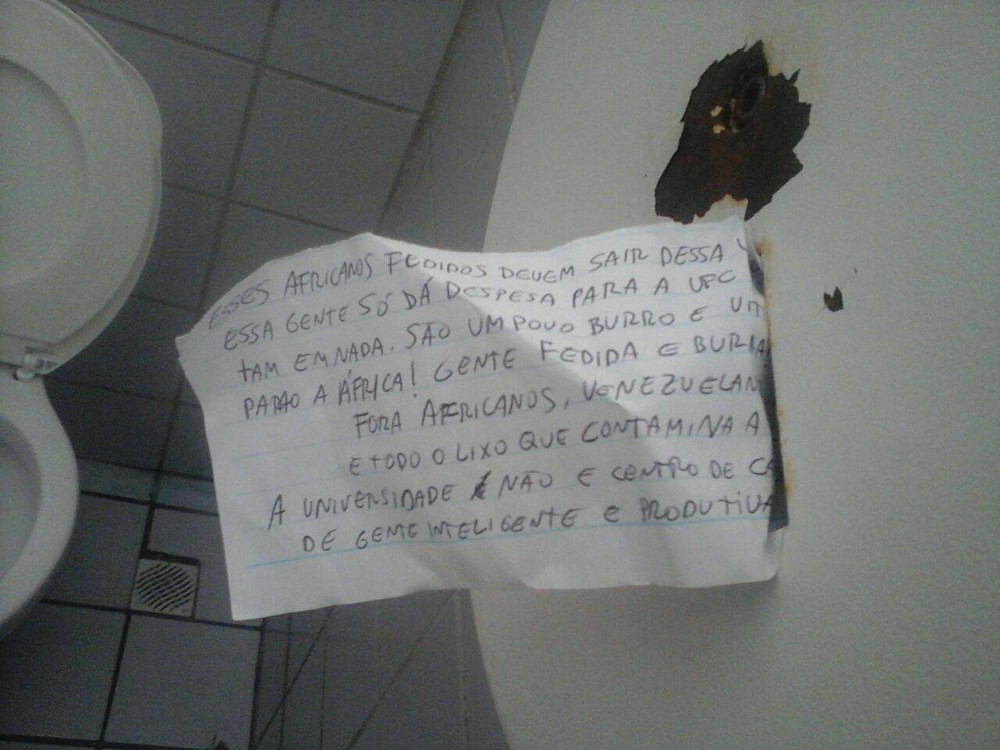 ESSES AFRICANOS FEDIDOS DEVEM SAIR DESSA
ESSA GENTE SÓ DÁ DESPESA PARA A UFC
TAM EM NADA. SÃO UM POVO BURRO E
PARAO A ÁFRICA! GENTE FEDIDA E
FORA AFRICANOS,
E TODO O LIXO QUE CONTAMINA A
A UNIVERSIDADE NÃO E CENTRO DE
DE GENTE INTELIGENTE E